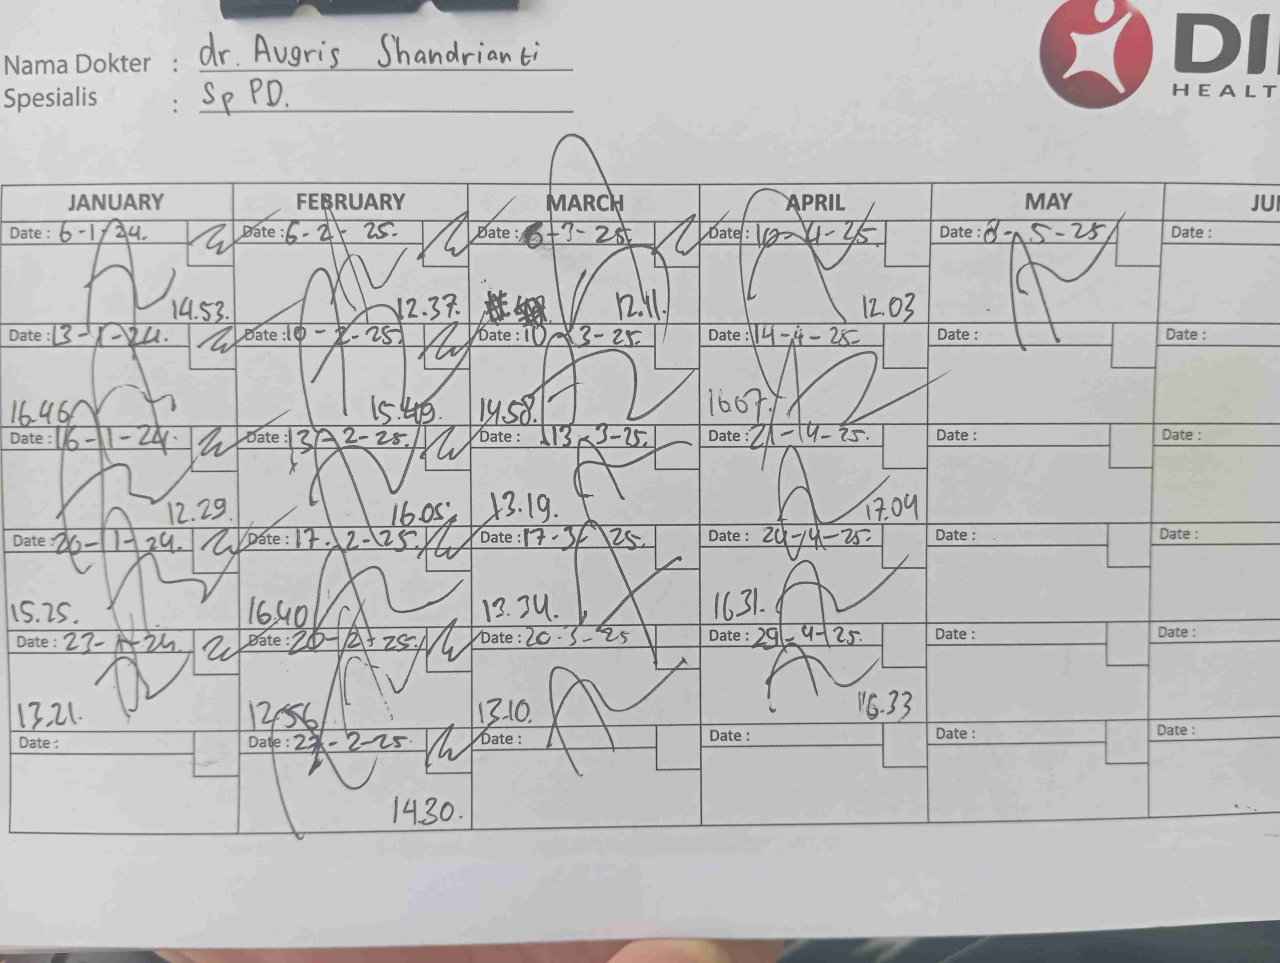 Nama Dokter : dr. Augris Shandrianti
Spesialis : Sp PD.
DI
HEALT
JANUARY FEBRUARY MARCH APRIL MAY JU
Date : 6-1-24. Date : 6-2-25. Date : 6-3-25. Date : 10-4-25. Date : 8-5-25 Date :
14.53. 12.37. 12.11. 12.03
Date : 13-1-24. Date : 10-2-25. Date : 10-3-25. Date : 14-4-25. Date : Date :
16.46 15.49. 14.58. 16.07.
Date : 16-1-24. Date : 13-2-25. Date : 13-3-25. Date : 21-4-25. Date : Date :
12.29. 16.05. 13.19. 17.09
Date : 20-1-24. Date : 17-2-25. Date : 17-3-25. Date : 24-4-25. Date : Date :
15.25. 16.40 13.34. 16.31.
Date : 23-1-24. Date : 20-2-25. Date : 20-3-25 Date : 29-4-25. Date : Date :
13.21. 12.56 13.10. 16.33
Date : Date : 27-2-25. Date : Date : Date : Date :
14.30.